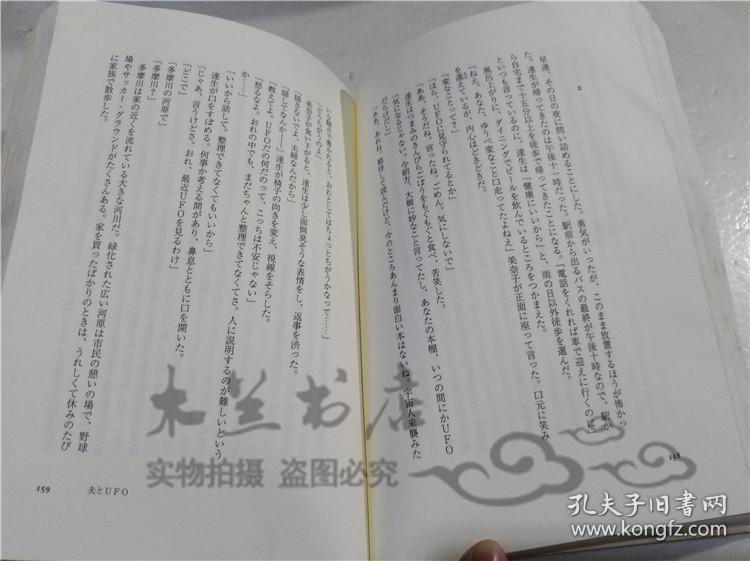 2
早速、その日の夜に問い詰めることにした。勇気がいったが、このまま放置するほうが怖かっ
た。達生が帰ってきたのは午後十一時だった。駅前から出るバスの最終が午後十時なので、駅か
ら自宅まで十五分以上を徒歩で帰ってきたことになる。「電話をくれれば車で迎えに行くのに」
といつも言っているのに、達生は「健康にいいから」と、雨の日以外徒歩を選んだ。
風呂上がりに、ダイニングでビールを飲んでいるところをつかまえた。
「ねえ、あなた、ゆうべ変なこと口走ってたよねえ」美奈子が正面に座って言った。口元に笑み
を湛えているが、内心はどきどきだ。
「変なことって?」
「ほら、UFOに見守られてるとか」
「ああ、そうだね。言ったね。ごめん。気にしないで」
達生はつまみのきんぴらごぼうをもぐもぐと食べ、苦笑した。
「気になるじゃない。今朝方、大樹に妙なこと言ってたし、あなたの本棚、いつの間にかUFO
だらけだし」
「ああ、あれね。
今のところあんまり面白い本はないね。宇宙人来襲みた
158
いな観点で書かれると、おれとしてはちょっとちがうかなって……」
「どうちがうのよ」
美奈子が食い下がると、達生は少し面倒臭そうな表情をし、返事を渋った。
「隠さないでよ、夫婦なんだから」
「隠してなんか――」達生が椅子の向きを変え、視線をそらした。
「教えてよ。UFOだの何だのって、こっちは不安じゃない」
「怒るなよ。おれの中でも、まだちゃんと整理できてなくてさ。人に説明するのが難しいという
か……」
「いいから話して。整理できてなくてもいいから」
達生が口をすぼめる。何事か考える間があり、鼻息とともに口を開いた。
「じゃあ、言うけどさ。おれ、最近UFOを見るわけ」
「どこで」
「多摩川の河原で」
「多摩川?」
多摩川は家の近くを流れている大きな河川だ。緑化された広い河原は市民の憩いの場で、野球
場やサッカー・グラウンドがたくさんある。家を買ったばかりのときは、うれしくて休みのたび
に家族で散歩した。
159 夫とUFO
木兰书店
实物拍摄 盗图必究
孔夫子旧书网
www.kongfz.com